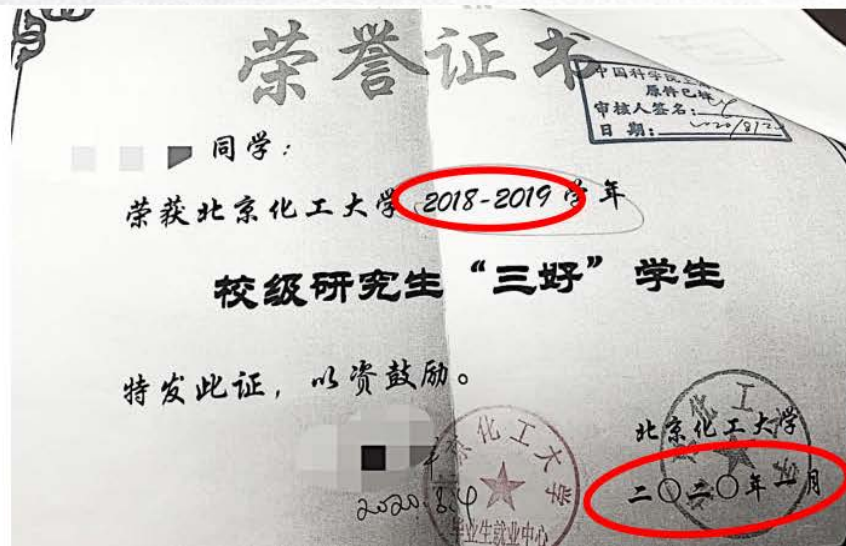 荣誉证书
中国科学院
原件已
审核人签名:
日 期: 2020/8/2
同学:
荣获北京化工大学 2018-2019 学年
校级研究生“三好”学生
特发此证,以资鼓励。
北京化工大学
二〇二〇年 月
2020.8.4
京化工大学
毕业生就业中心